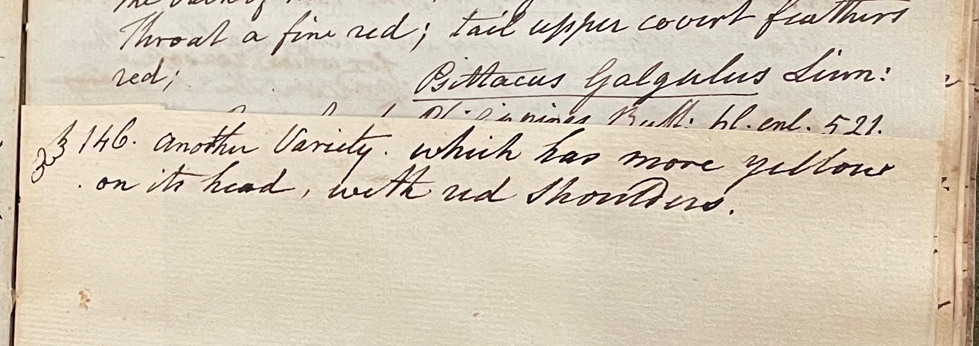 the back of
Throat a fine red; tail upper covert feathers
red; Psittacus Galgulus Linn:
Philippines Buff. pl. enl. 521.
33 146. another Variety. which has more yellow
. on its head, with red Shoulders.